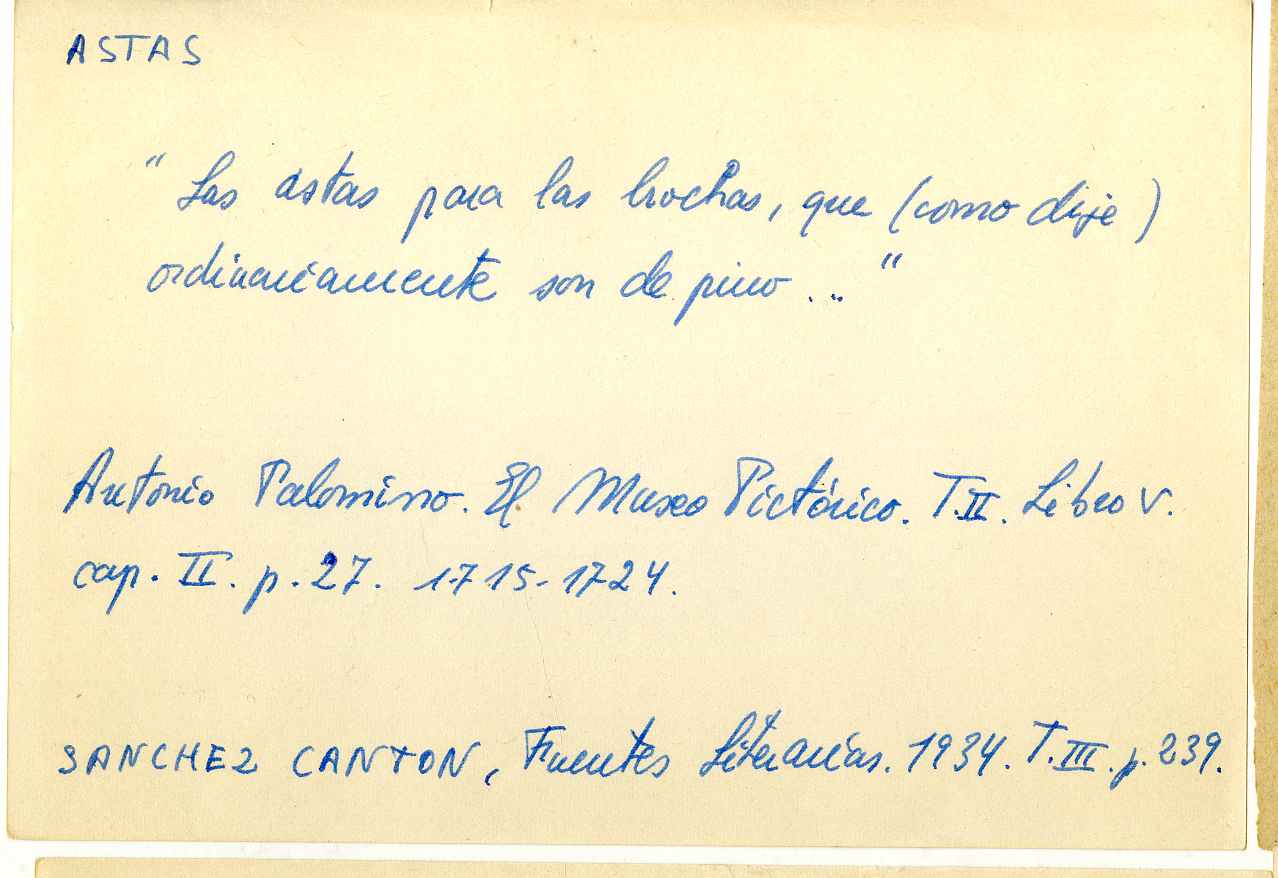 ASTAS
" Las astas para las brochas, que (como dije)
ordinariamente son de pino ... "
Antonio Palomino. El Museo Pictórico. T.II. Libro V.
cap. II. p. 27. 1715-1724.
SANCHEZ CANTON, Fuentes Literarias. 1934. T.III. p. 239.